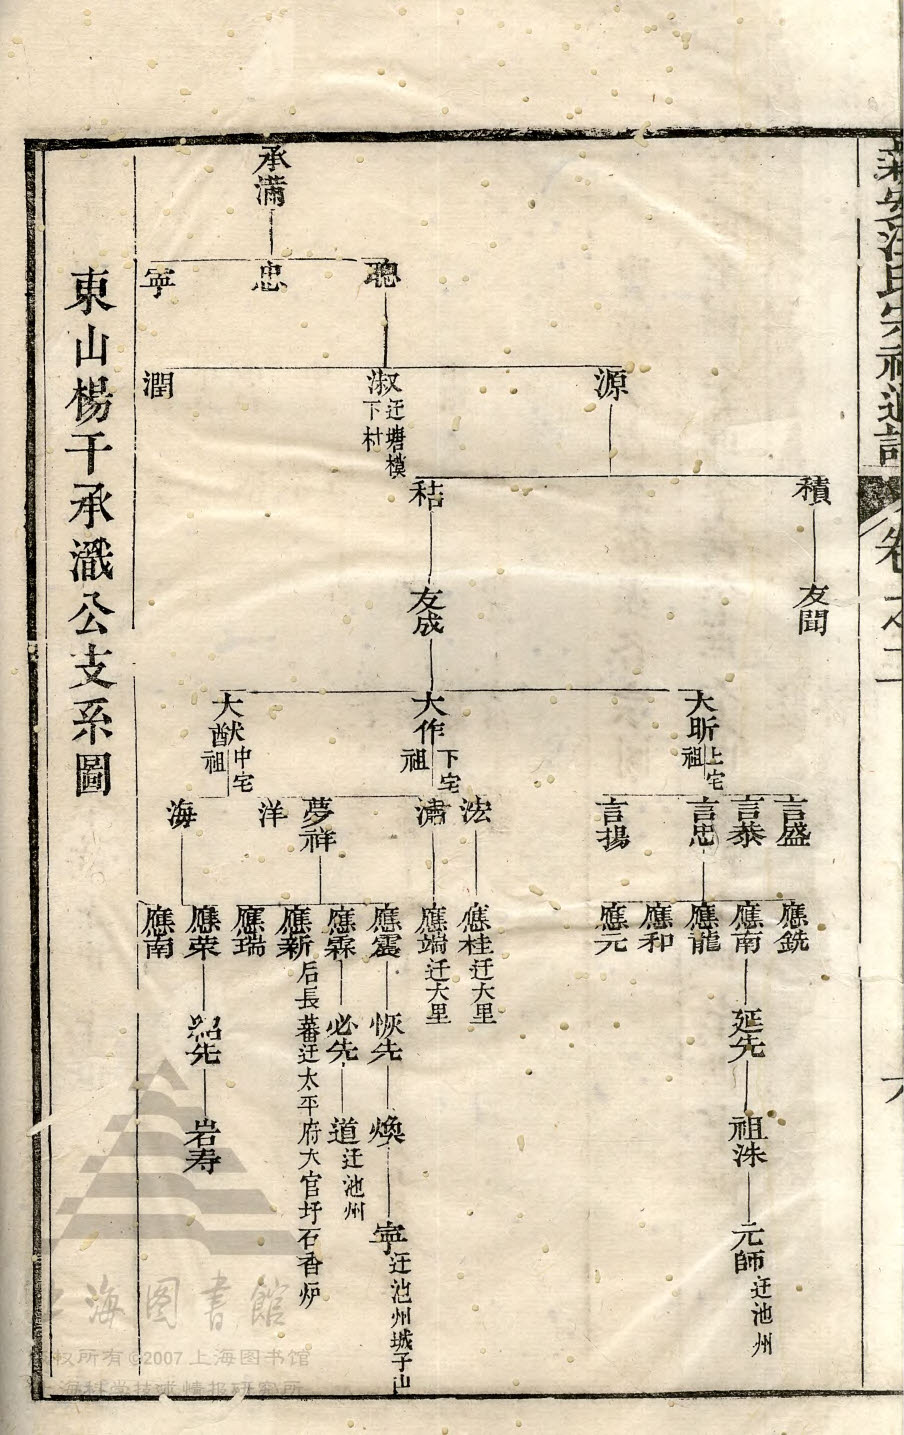 新安汪氏宗祠通譜
卷之三
六
承滿
聰
忠
寧
源
淑 迁塘模下村
潤
積
秸
友聞
友成
大昕 上宅祖
大作 下宅祖
大猷 中宅祖
言盛
言恭
言忠
言揚
法
潚
夢祥
洋
海
應銑
應南
應龍
應和
應元
應桂 迁大里
應端 迁大里
應震
應霖
應新 后長蕃迁太平府大官圩石香炉
應瑞
應荣
應南
延先
恢先
必先
紹先
祖洙
煥
道 迁池州
岩寿
元師 迁池州
寧 迁池州城子山
東山楊干承瀐公支系圖
上海图書館
版权所有©2007 上海图书馆
上海科学技术情报研究所